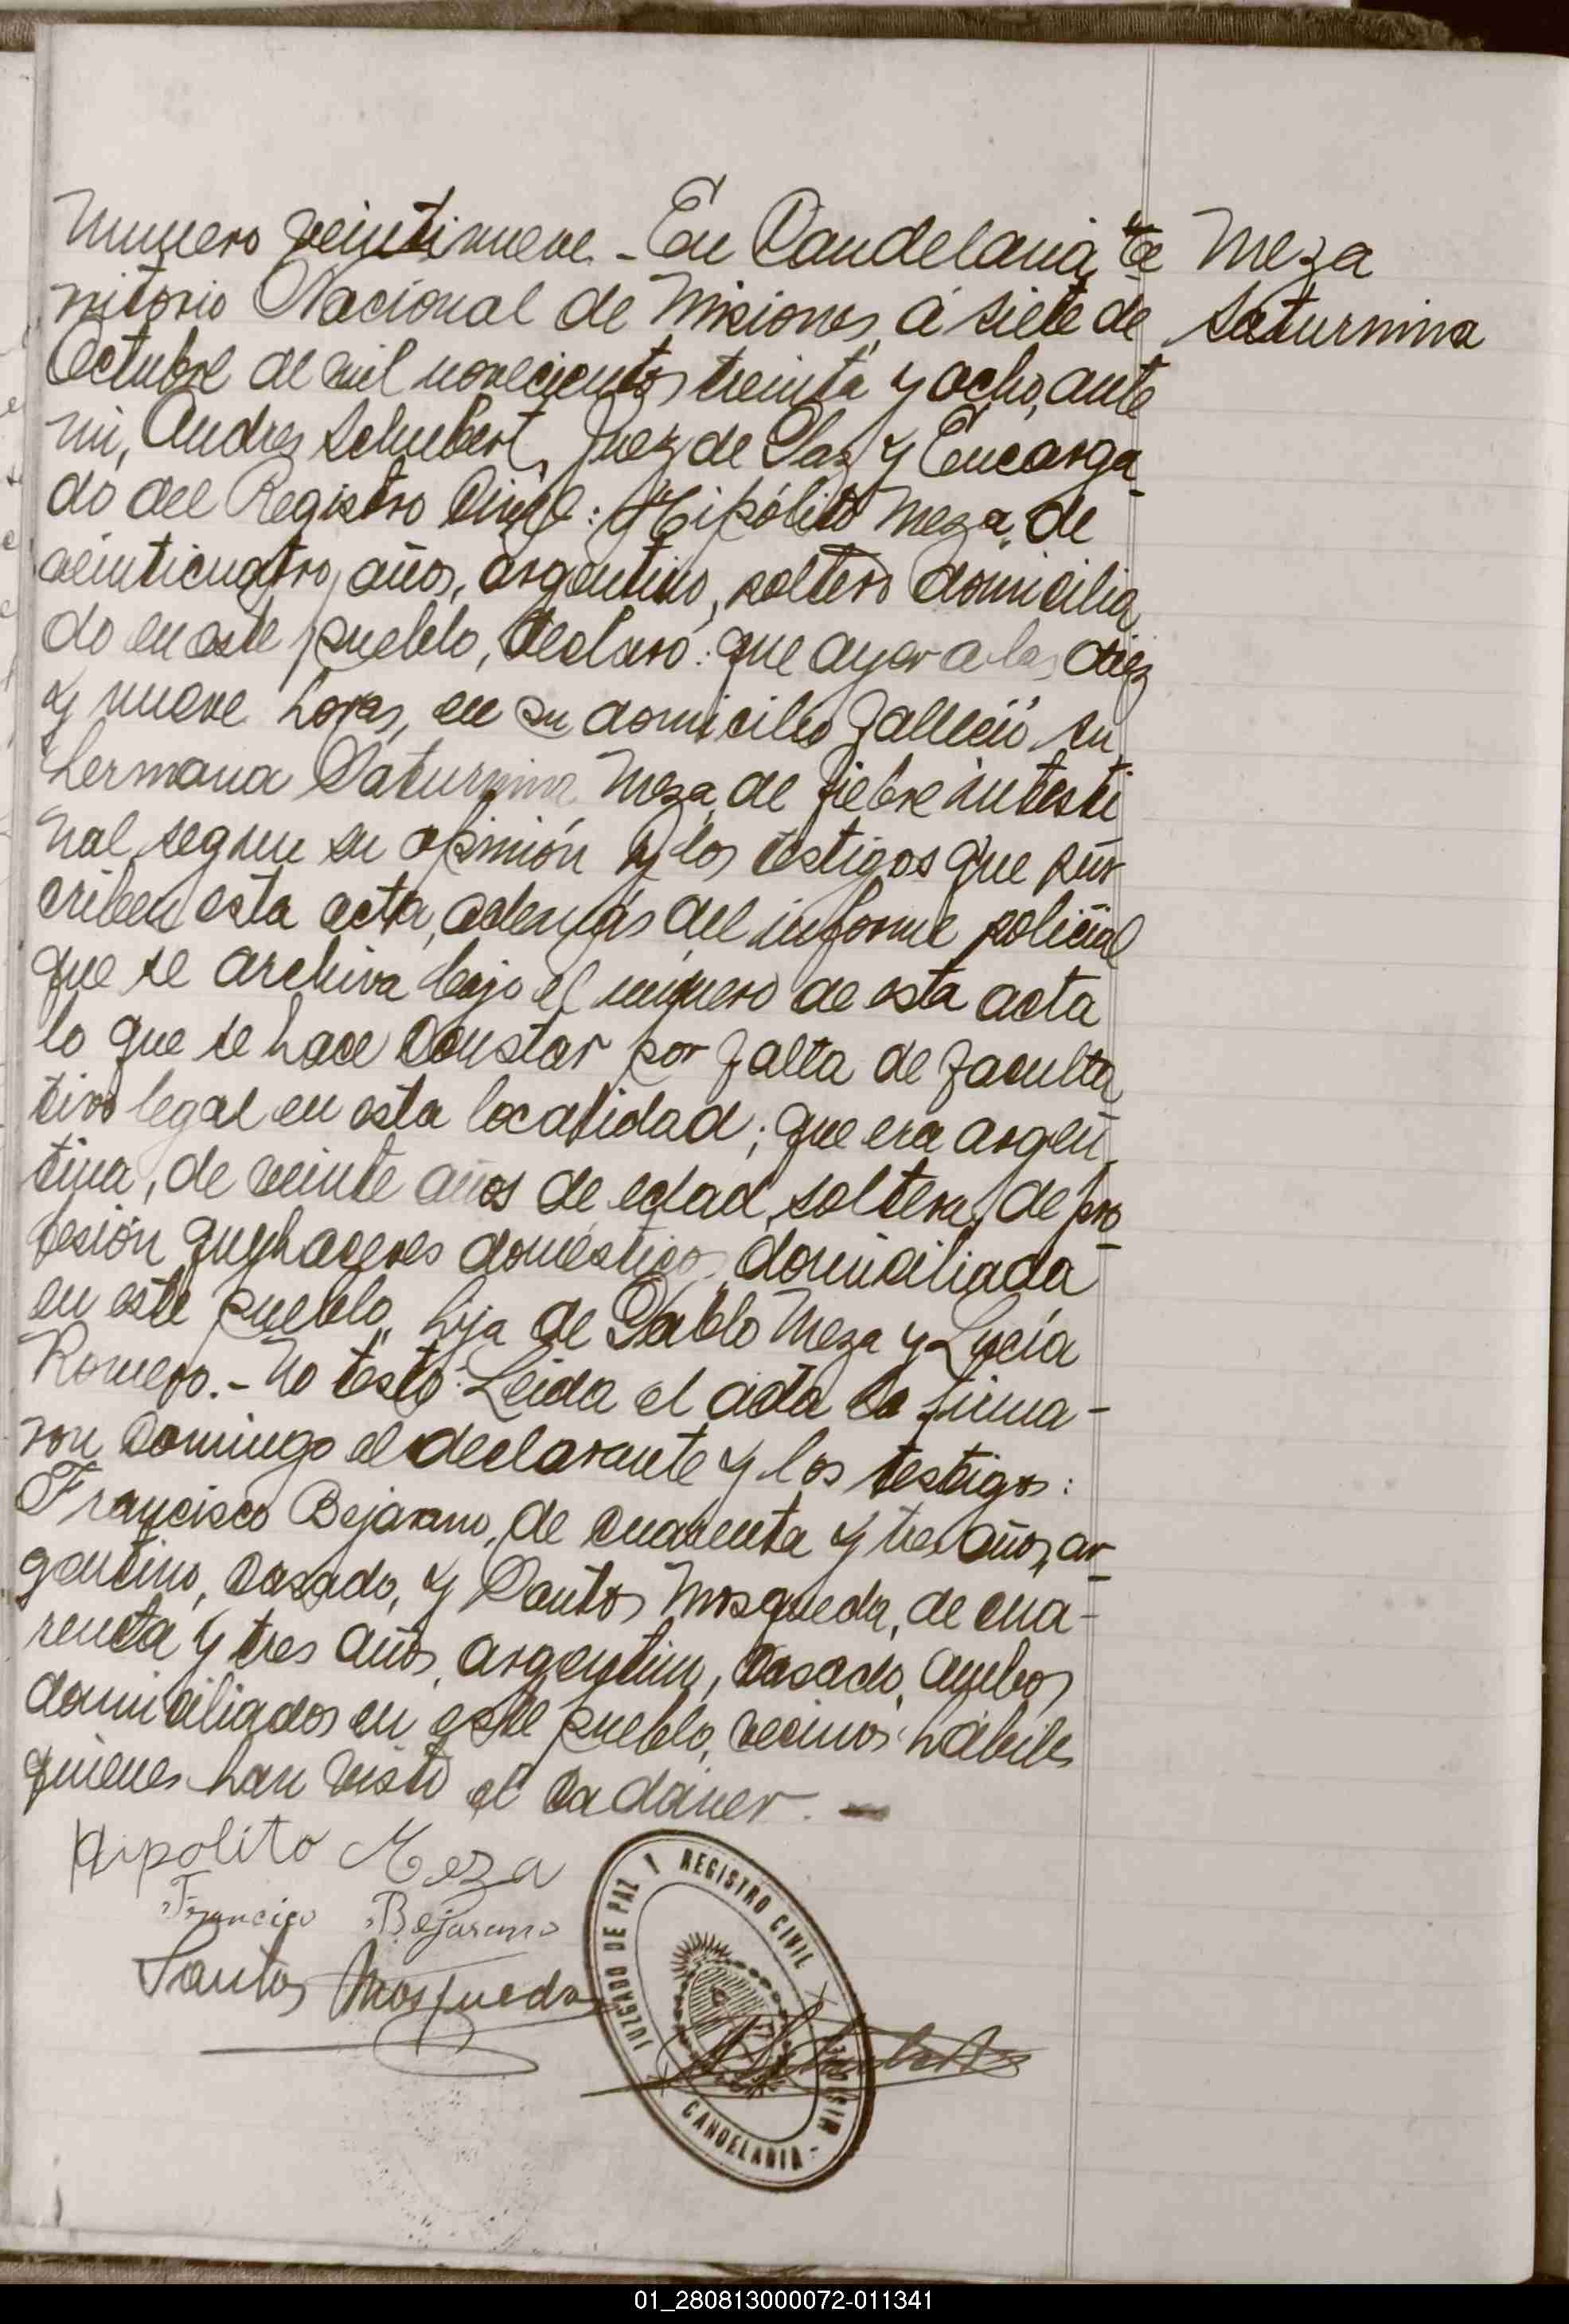 Numero veintinueve - En Candelaria, te
Meza
Saturnina
rritorio Nacional de Misiones, á siete de
Octubre de mil novecientos treinta y ocho, ante
mi, Andres Schubert, Juez de Paz y Encarga-
do del Registro Civil: Hipólito Meza, de
veinticuatro años, argentino, soltero domicilia
do en este pueblo, declaró: que ayer a las diez
y nueve horas, en su domicilio falleció su
hermana Saturnina Meza, de fiebre intesti
nal, segun su opinión y los testigos que sus
criben esta acta, además del informe policial
que se archiva bajo el número de esta acta
lo que se hace constar por falta de faculta
tivo legal en esta localidad; que era argen
tina, de veinte años de edad, soltera, de pro-
fesión quehaceres domésticos, domiciliada
en este pueblo, hija de Pablo Meza y Lucía
Romero.- No testó. Leida el acta la firma-
ron conmigo el declarante y los testigos:
Francisco Bejarano, de cuarenta y tres años, ar-
gentino, casado, y Santos Mosqueda, de cua-
renta y tres años, argentino, casado, ambos
domiciliados en este pueblo, vecinos hábiles
quienes han visto el cadáver. -
Hipolito Meza
Francisco Bejarano
Santos Mosqueda
JUZGADO DE PAZ Y REGISTRO CIVIL
CANDELARIA - MISIONES
01_280813000072-011341